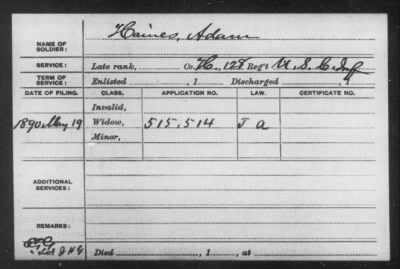 NAME OF SOLDIER: Haines, Adam
SERVICE: Late rank, Co. H., 128 Reg't U. S. C. Inf
TERM OF SERVICE: Enlisted , 1 Discharged , 1
DATE OF FILING. CLASS. APPLICATION NO. LAW. CERTIFICATE NO.
Invalid,
1890 May 19 Widow, 515,514 J a
Minor,
ADDITIONAL SERVICES:
REMARKS:
Died , 1 , at